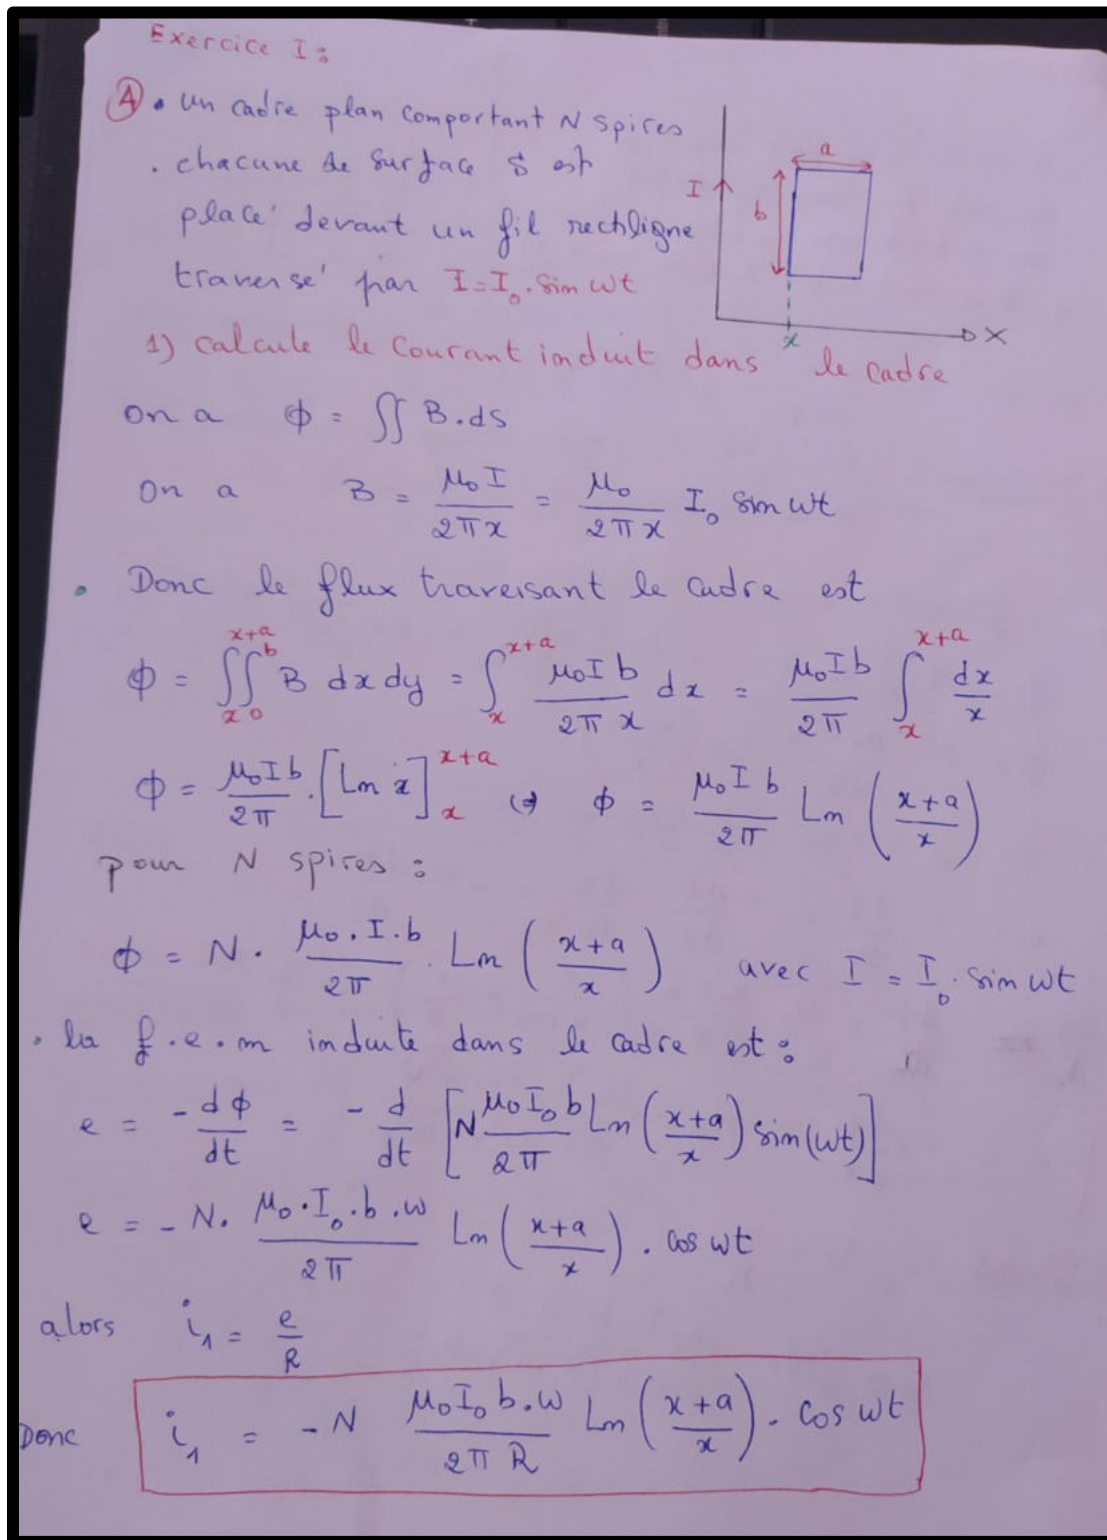 Exercice I :
A • un cadre plan comportant N spires
. chacune de surface S est
placé devant un fil rectligne
traversé par I = I₀ . sin wt
a
I
b
x
X
1) calcule le courant induit dans le cadre
on a ɸ = ∬ B . ds
on a B = μ₀ I / 2π x = μ₀ / 2π x I₀ sin wt
• Donc le flux traversant le cadre est
ɸ = ∫ₓ^{x+a} ∫₀^b B dx dy = ∫ₓ^{x+a} μ₀ I b / 2π x dx = μ₀ I b / 2π ∫ₓ^{x+a} dx / x
ɸ = μ₀ I b / 2π . [Ln x]ₓ^{x+a} ⇔ ɸ = μ₀ I b / 2π Ln ( x+a / x )
pour N spires :
ɸ = N . μ₀ . I . b / 2π . Ln ( x+a / x ) avec I = I₀ . sin wt
• la f.e.m induite dans le cadre est :
e = - dɸ / dt = - d / dt [ N μ₀ I₀ b / 2π Ln ( x+a / x ) sin(wt) ]
e = - N . μ₀ . I₀ . b . w / 2π Ln ( x+a / x ) . cos wt
alors i₁ = e / R
Donc i₁ = - N μ₀ I₀ b . w / 2π R Ln ( x+a / x ) . cos wt